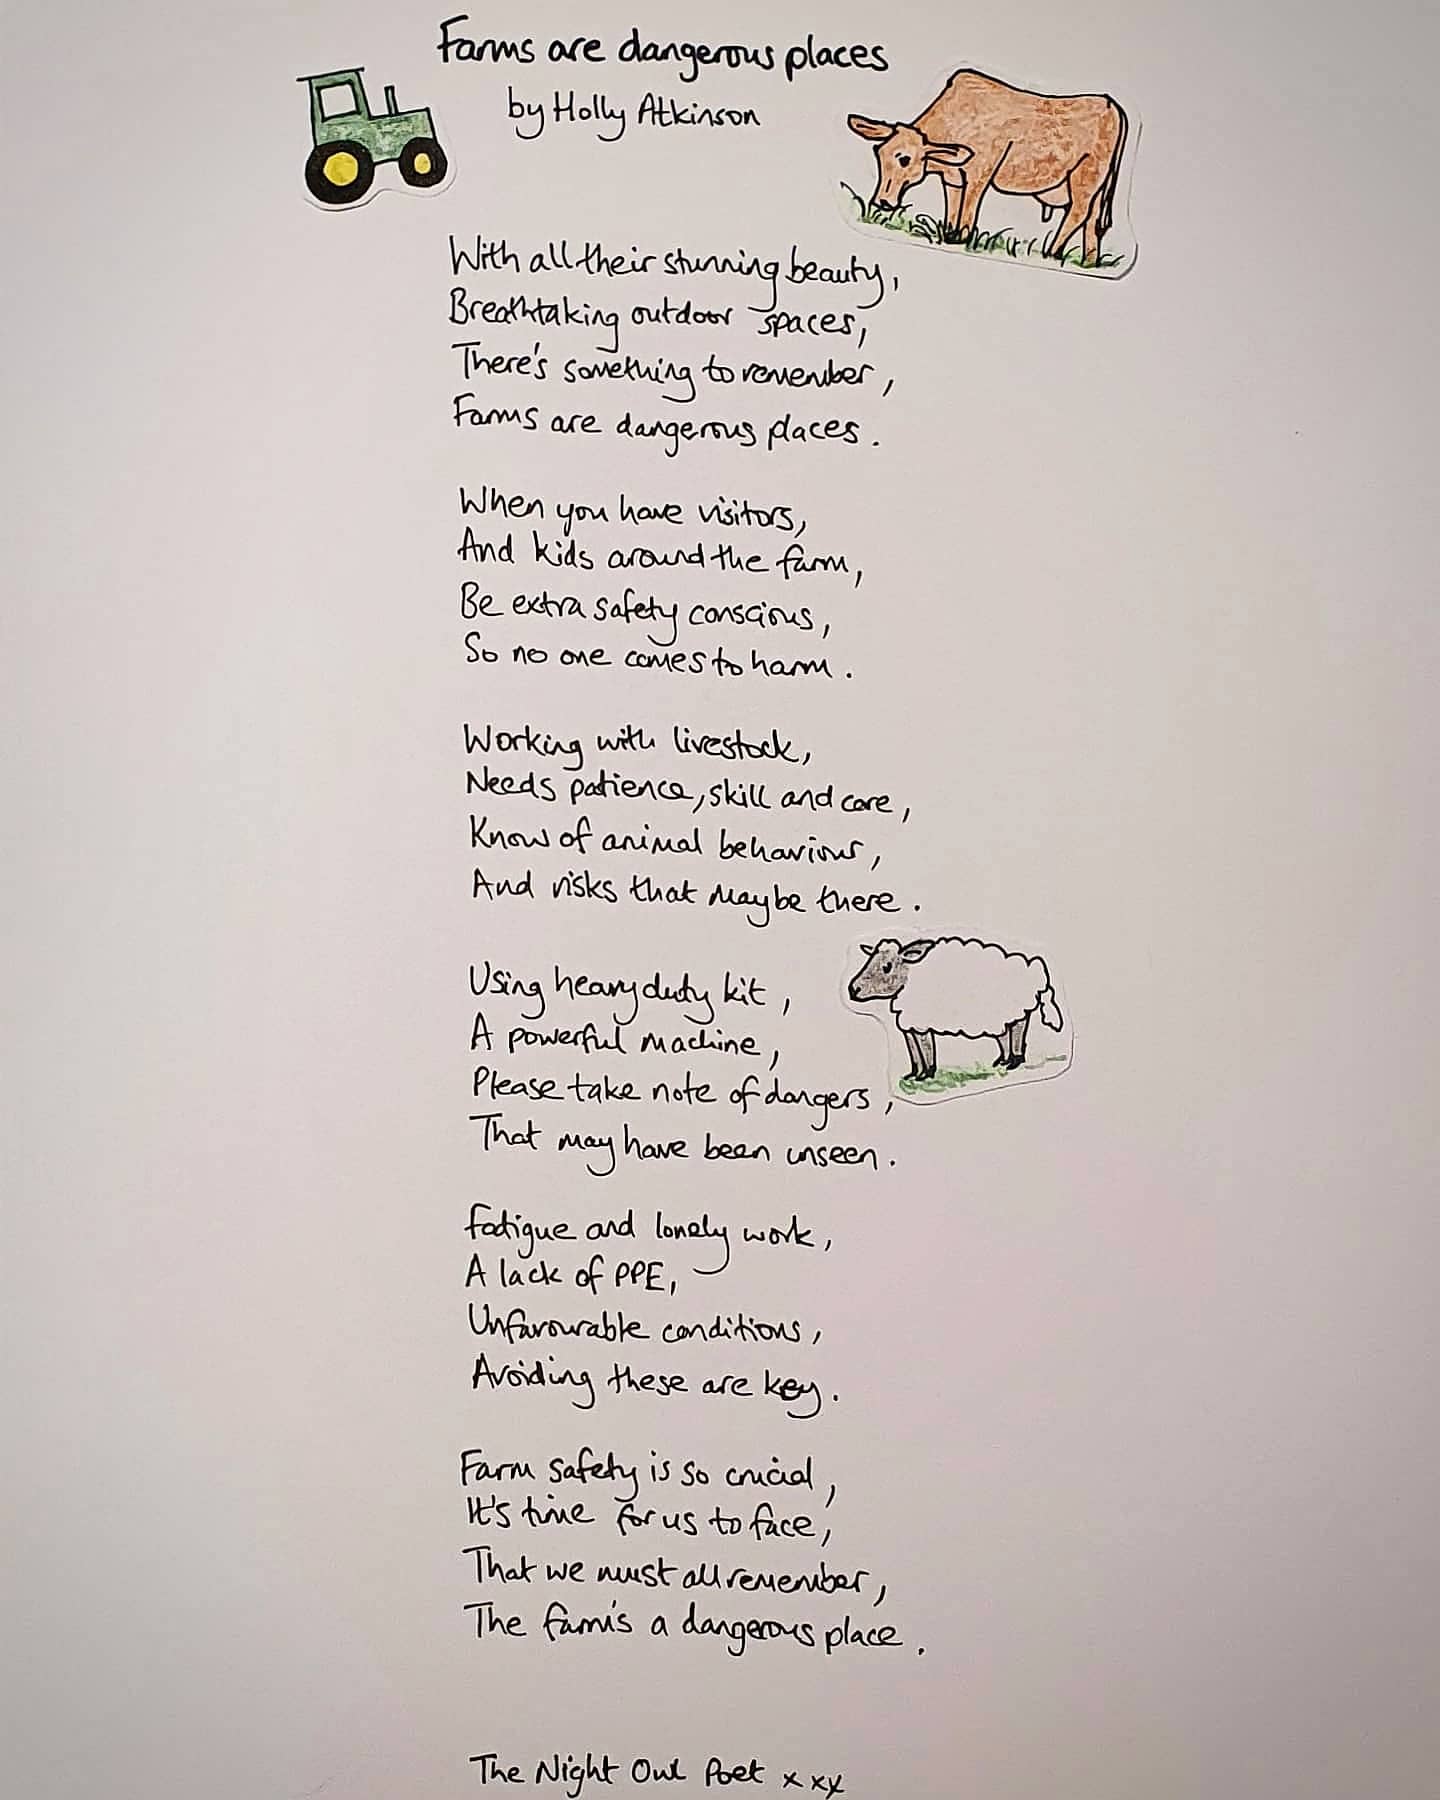 Farms are dangerous places
by Holly Atkinson
With all their stunning beauty,
Breathtaking outdoor spaces,
There's something to remember,
Farms are dangerous places.
When you have visitors,
And kids around the farm,
Be extra safety conscious,
So no one comes to harm.
Working with livestock,
Needs patience, skill and care,
Know of animal behaviour,
And risks that may be there.
Using heavy duty kit,
A powerful machine,
Please take note of dangers,
That may have been unseen.
Fatigue and lonely work,
A lack of PPE,
Unfavourable conditions,
Avoiding these are key.
Farm safety is so crucial,
It's time for us to face,
That we must all remember,
The farm's a dangerous place.
The Night Owl Poet xxx